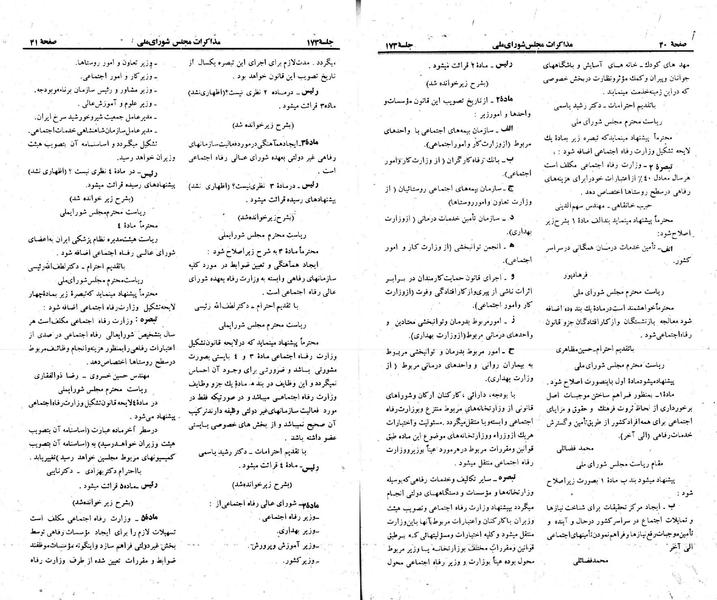 صفحهٔ ۲۰
مذاکرات مجلس شورای ملی
جلسهٔ ۱۷۳
مهد های کودک - خانه های آسایش و باشگاههای
جوانان و پیران و کمک مؤثر و نظارت در بخش خصوصی
که در این زمینه خدمت مینمایند.
با تقدیم احترامات - دکتر رشید یاسمی
ریاست محترم مجلس شورای ملی
محترماً پیشنهاد مینماید که تبصره زیر بماده یک
لایحه تشکیل وزارت رفاه اجتماعی اضافه شود:
تبصره ۲ - وزارت رفاه اجتماعی مکلف است
هر سال معادل ۴۰٪ از اعتبارات خود را برای هزینه‌های
رفاهی در سطح روستاها اختصاص دهد.
حبیب خانقاهی - مهندس سهم‌الدینی
محترماً پیشنهاد مینماید بند الف ماده ۱ بشرح زیر
اصلاح شود:
الف - تأمین خدمات درمان همگانی در سراسر
کشور.
فرهادپور
ریاست محترم مجلس شورای ملی
محترماً خواهشمند است در ماده یک بند ده اضافه
شود معالجه بازنشستگان و از کار افتادگان جزو قانون
رفاه اجتماعی شود.
با تقدیم احترام - حسین مظاهری
ریاست محترم مجلس شورای ملی
پیشنهاد میشود مادهٔ اول باینصورت اصلاح شود.
ماده ۱ - بمنظور فراهم ساختن موجبات اصل
برخورداری از لحاظ ثروت فرهنگ و حقوق و مزایای
اجتماعی برای همه افراد کشور از طریق تأمین و گسترش
خدمات رفاهی (الی آخر).
محمد فضائلی
مقام ریاست محترم مجلس شورای ملی
پیشنهاد میشود بند ب ماده ۱ بصورت زیر اصلاح
شود:
ب - ایجاد مرکز تحقیقات برای شناخت نیازها
و تمایلات اجتماع در سراسر کشور در حال و آینده و
تأمین موجبات رفع نیازها و فراهم نمودن تأمینهای اجتماعی
الی آخر
محمد فضائلی
رئیس - مادهٔ ۲ قرائت میشود.
(بشرح زیر خوانده شد)
ماده ۲ - از تاریخ تصویب این قانون مؤسسات و
واحدها و امور زیر:
الف - سازمان بیمه‌های اجتماعی با واحدهای
مربوط (از وزارت کار و امور اجتماعی).
ب - بانک رفاه کارگران (از وزارت کار و امور
اجتماعی).
ج - سازمان بیمه‌های اجتماعی روستائیان (از
وزارت تعاون و امور روستاها)
د - سازمان تأمین خدمات درمانی (از وزارت
بهداری).
ه - انجمن توانبخشی (از وزارت کار و امور
اجتماعی).
و - اجرای قانون حمایت کارمندان در برابر
اثرات ناشی از پیری و از کار افتادگی وفوت (از وزارت
کار و امور اجتماعی).
ز - امور مربوط بدرمان و توانبخشی معتادین و
واحدهای درمانی مربوط (از وزارت بهداری)
ح - امور مربوط بدرمان و توانبخشی مربوط
به بیماران روانی و واحدهای درمانی مربوط (از
وزارت بهداری).
با بودجه، دارائی، کارکنان ارکان و شوراهای
قانونی از وزارتخانه‌های مربوط منتزع و بوزارت رفاه
اجتماعی وابسته یا منتقل میگردد. مسئولیت و اختیارات
هریک از وزراء و وزارتخانه‌های موضوع این ماده طبق
قوانین و مقررات مربوط در هر مورد عیناً بوزیر و وزارت
رفاه اجتماعی منتقل میشود.
تبصره - سایر تکالیف و خدمات رفاهی که بوسیله
وزارتخانه‌ها و مؤسسات و دستگاههای دولتی انجام
میگردد بپیشنهاد وزارت رفاه اجتماعی و تصویب هیئت
وزیران با کارکنان و اعتبارات مربوط بآنها باین وزارت
منتقل میشود و کلیه اختیارات و مسئولیتهائی که بموجب
قوانین و مقررات مختلف بوزارتخانه یا وزیر مربوط
محول بوده عیناً بوزارت و وزیر رفاه اجتماعی محول
جلسهٔ ۱۷۳
مذاکرات مجلس شورای ملی
صفحهٔ ۲۱
میگردد. مدت لازم برای اجرای این تبصره یکسال از
تاریخ تصویب این قانون خواهد بود.
رئیس - در ماده ۲ نظری نیست؟ (اظهاری نشد)
ماده ۳ قرائت میشود.
(بشرح زیر خوانده شد)
ماده ۳ - ایجاد هماهنگی در مورد فعالیت سازمانهای
رفاهی غیر دولتی بعهده شورای عالی رفاه اجتماعی
است.
رئیس - در ماده ۳ نظری نیست؟ (اظهاری نشد)
پیشنهادهای رسیده قرائت میشود.
(بشرح زیر خوانده شد)
ریاست محترم مجلس شورای ملی
محترماً ماده ۳ به شرح زیر اصلاح شود:
ایجاد هماهنگی و تعیین ضوابط در مورد کلیه
سازمانهای رفاهی و نظارت به وزارت رفاه بعهده شورای
عالی رفاه اجتماعی است.
با تقدیم احترام - دکتر لطف‌الله رئیسی
ریاست محترم مجلس شورای ملی
محترماً پیشنهاد مینماید که در لایحه قانون تشکیل
وزارت رفاه اجتماعی ماده ۳ و ۴ بایستی بصورت
شمولی باشد و ضرورتی برای وجود آن احساس
نمیگردد و این وظایف در بند ه مادهٔ یک جزو وظایف
وزارت رفاه اجتماعی میباشد و در صورتیکه فقط در
مورد فعالیت سازمانهای غیر دولتی وظیفه دارند ترکیب
آن صحیح نمیباشد و از بخش های خصوصی بایستی
عضو داشته باشد.
با تقدیم احترامات - دکتر رشید یاسمی
رئیس - مادهٔ ۴ قرائت میشود.
(بشرح زیر خوانده شد)
ماده ۴ - شورای عالی رفاه اجتماعی از:
- وزیر رفاه اجتماعی.
- وزیر بهداری.
- وزیر آموزش و پرورش.
- وزیر کشور.
- وزیر تعاون و امور روستاها.
- وزیر کار و امور اجتماعی.
- وزیر مشاور و رئیس سازمان برنامه و بودجه.
- وزیر علوم و آموزش عالی.
- مدیرعامل جمعیت شیر و خورشید سرخ ایران.
- مدیرعامل سازمان شاهنشاهی خدمات اجتماعی.
تشکیل میگردد و اساسنامه آن بتصویب هیئت
وزیران خواهد رسید.
رئیس - در ماده ۴ نظری نیست؟ (اظهاری نشد)
پیشنهادهای رسیده قرائت میشود.
(بشرح زیر خوانده شد)
ریاست محترم مجلس شورایملی
محترماً ماده ۴
ریاست هیئت مدیره نظام پزشکی ایران به اعضای
شورای عالی رفاه اجتماعی اضافه شود.
با تقدیم احترام - دکتر لطف‌الله رئیسی
ریاست محترم مجلس شورای ملی
محترماً پیشنهاد مینماید که تبصره زیر بماده چهار
لایحه تشکیل وزارت رفاه اجتماعی اضافه شود:
تبصره: وزارت رفاه اجتماعی مکلف است هر
سال بتشخیص شورایعالی رفاه اجتماعی در صدی از
اعتبارات رفاهی را بمنظور هزینه و انجام وظائف مربوط
در سطح روستاها اختصاص دهد.
مهندس حسین خسروی - رضا ذوالفقاری
ریاست محترم مجلس شورایملی
در مادهٔ ۴ لایحه قانون تشکیل وزارت رفاه اجتماعی
پیشنهاد می‌شود.
در سطر آخر ماده عبارت (اساسنامه آن بتصویب
هیئت وزیران خواهد رسید) به (اساسنامه آن بتصویب
کمیسیونهای مربوط مجلسین خواهد رسید) تغییر یابد.
با احترام دکتر بهزادی - دکتر نایبی
رئیس - ماده ۵ قرائت میشود.
(بشرح زیر خوانده شد)
ماده ۵ - وزارت رفاه اجتماعی مکلف است
تسهیلات لازم را برای ایجاد مؤسسات رفاهی توسط
بخش غیر دولتی فراهم سازد و اینگونه مؤسسات موظفند
ضوابط و مقررات تعیین شده از طرف وزارت رفاه